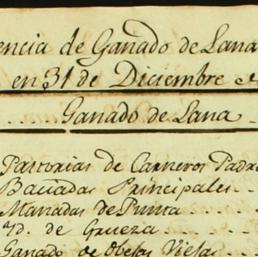 encia de Ganado de Lana
en 31 de Diciembre
Ganado de Lana
Pastorias de Carneros Padr
Bacíadas Principales
Manadas de Punta
Yd. de Grueza
Ganado de Obejas Viejas